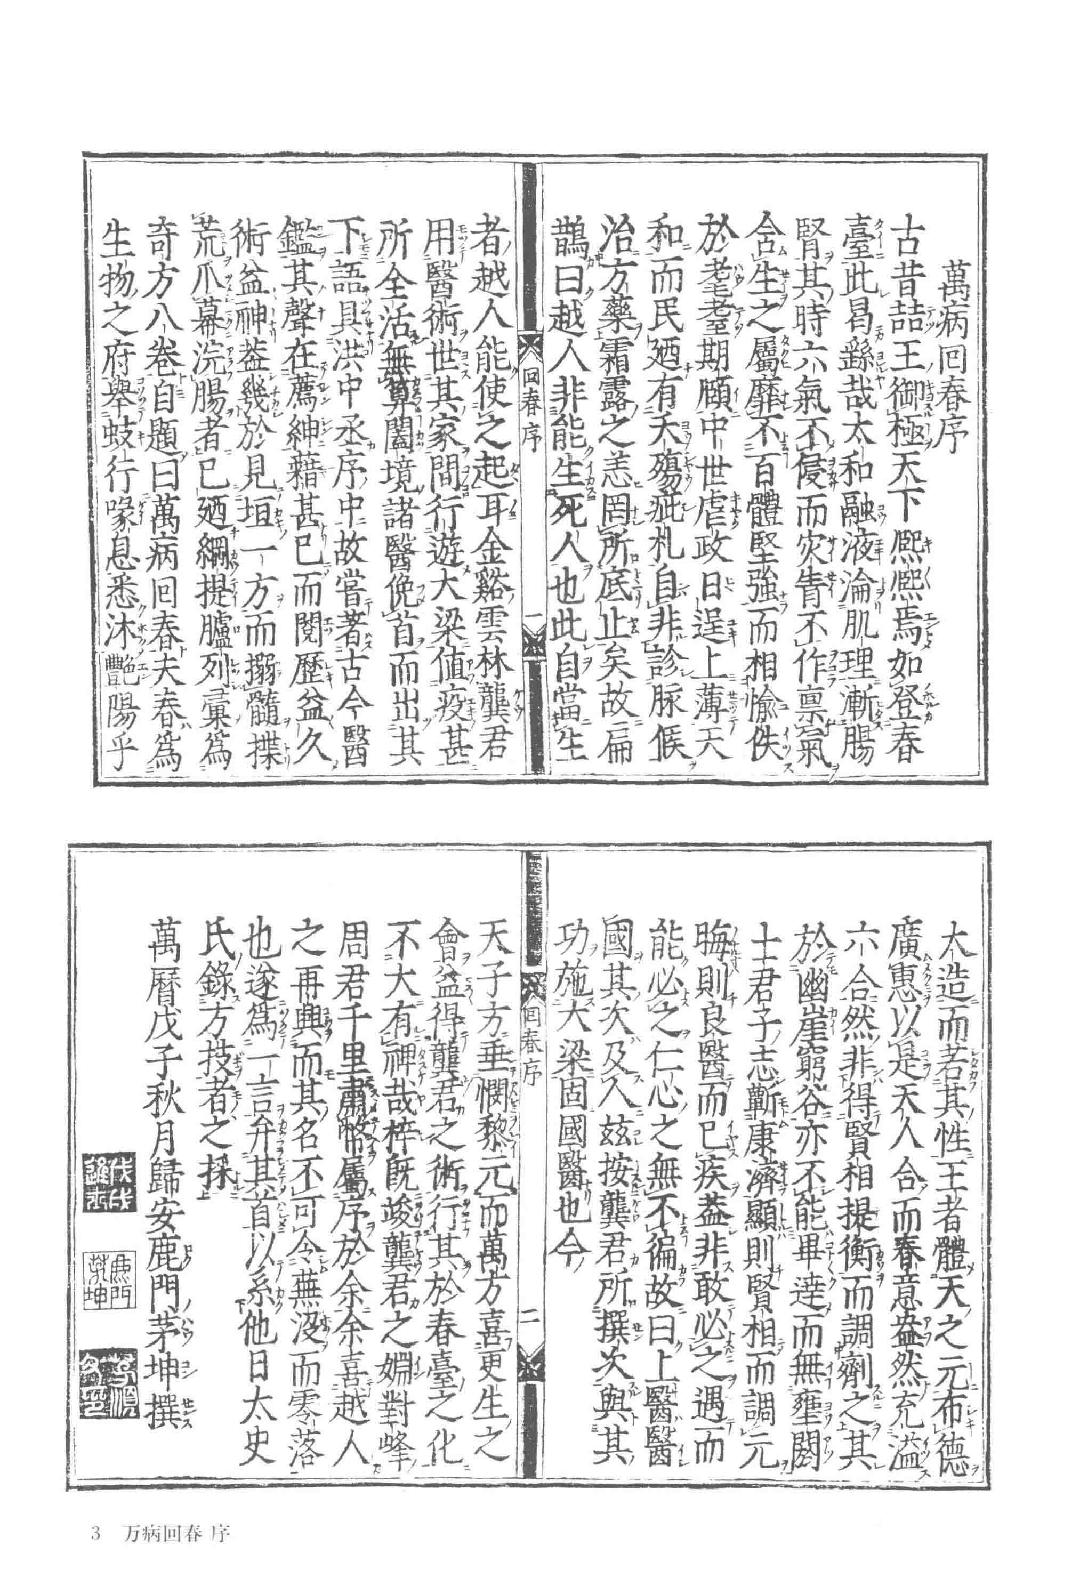 萬病回春序
古昔喆王御極天下熈熈焉如登春
臺此曷繇哉太和融液淪肌理漸腸
腎其時六氣不侵而灾眚不作禀氣
含生之屬靡不百體堅強而相愉佚
於耄耋期頤中世虐政日逞上薄天
和而民廼有夭殤疵札自非診脉候
治方藥霜露之恙罔所底止矣故扁
鵲曰越人非能生死人也此自當生
回春序
一
者越人能使之起耳金谿雲林龔君
用醫術世其家間行遊大梁値疫甚
所全活無算闔境諸醫俛首而出其
下語具洪中丞序中故嘗著古今醫
鑑其聲在薦紳藉甚已而閱歷益久
術益神葢幾於見垣一方而搦髓揲
荒爪幕浣腸者已廼綱提臚列彙爲
奇方八卷自題曰萬病回春夫春爲
生物之府舉蚑行喙息悉沐艷陽乎
大造而若其性王者體天之元布德
廣惠以是天人合而春意盎然充溢
六合然非得賢相提衡而調劑之其
於幽崖窮谷亦不能畢達而無壅閼
士君子志蘄康濟顯則賢相而調元
晦則良醫而已疾葢非敢必之遇而
能必之仁心之無不徧故曰上醫醫
國其次及人兹按龔君所撰次與其
功施大梁固國醫也今
回春序
二
天子方垂憫黎元而萬方喜更生之
會益得龔君之術行其於春臺之化
不大有裨哉梓旣竣龔君之婣對峰
周君千里肅幣屬序於余余喜越人
之再興而其名不可令蕪没而零落
也遂爲一言弁其首以系他日太史
氏錄方技者之採
萬曆戊子秋月歸安鹿門茅坤撰
鹿門
茅坤
3 万病回春 序